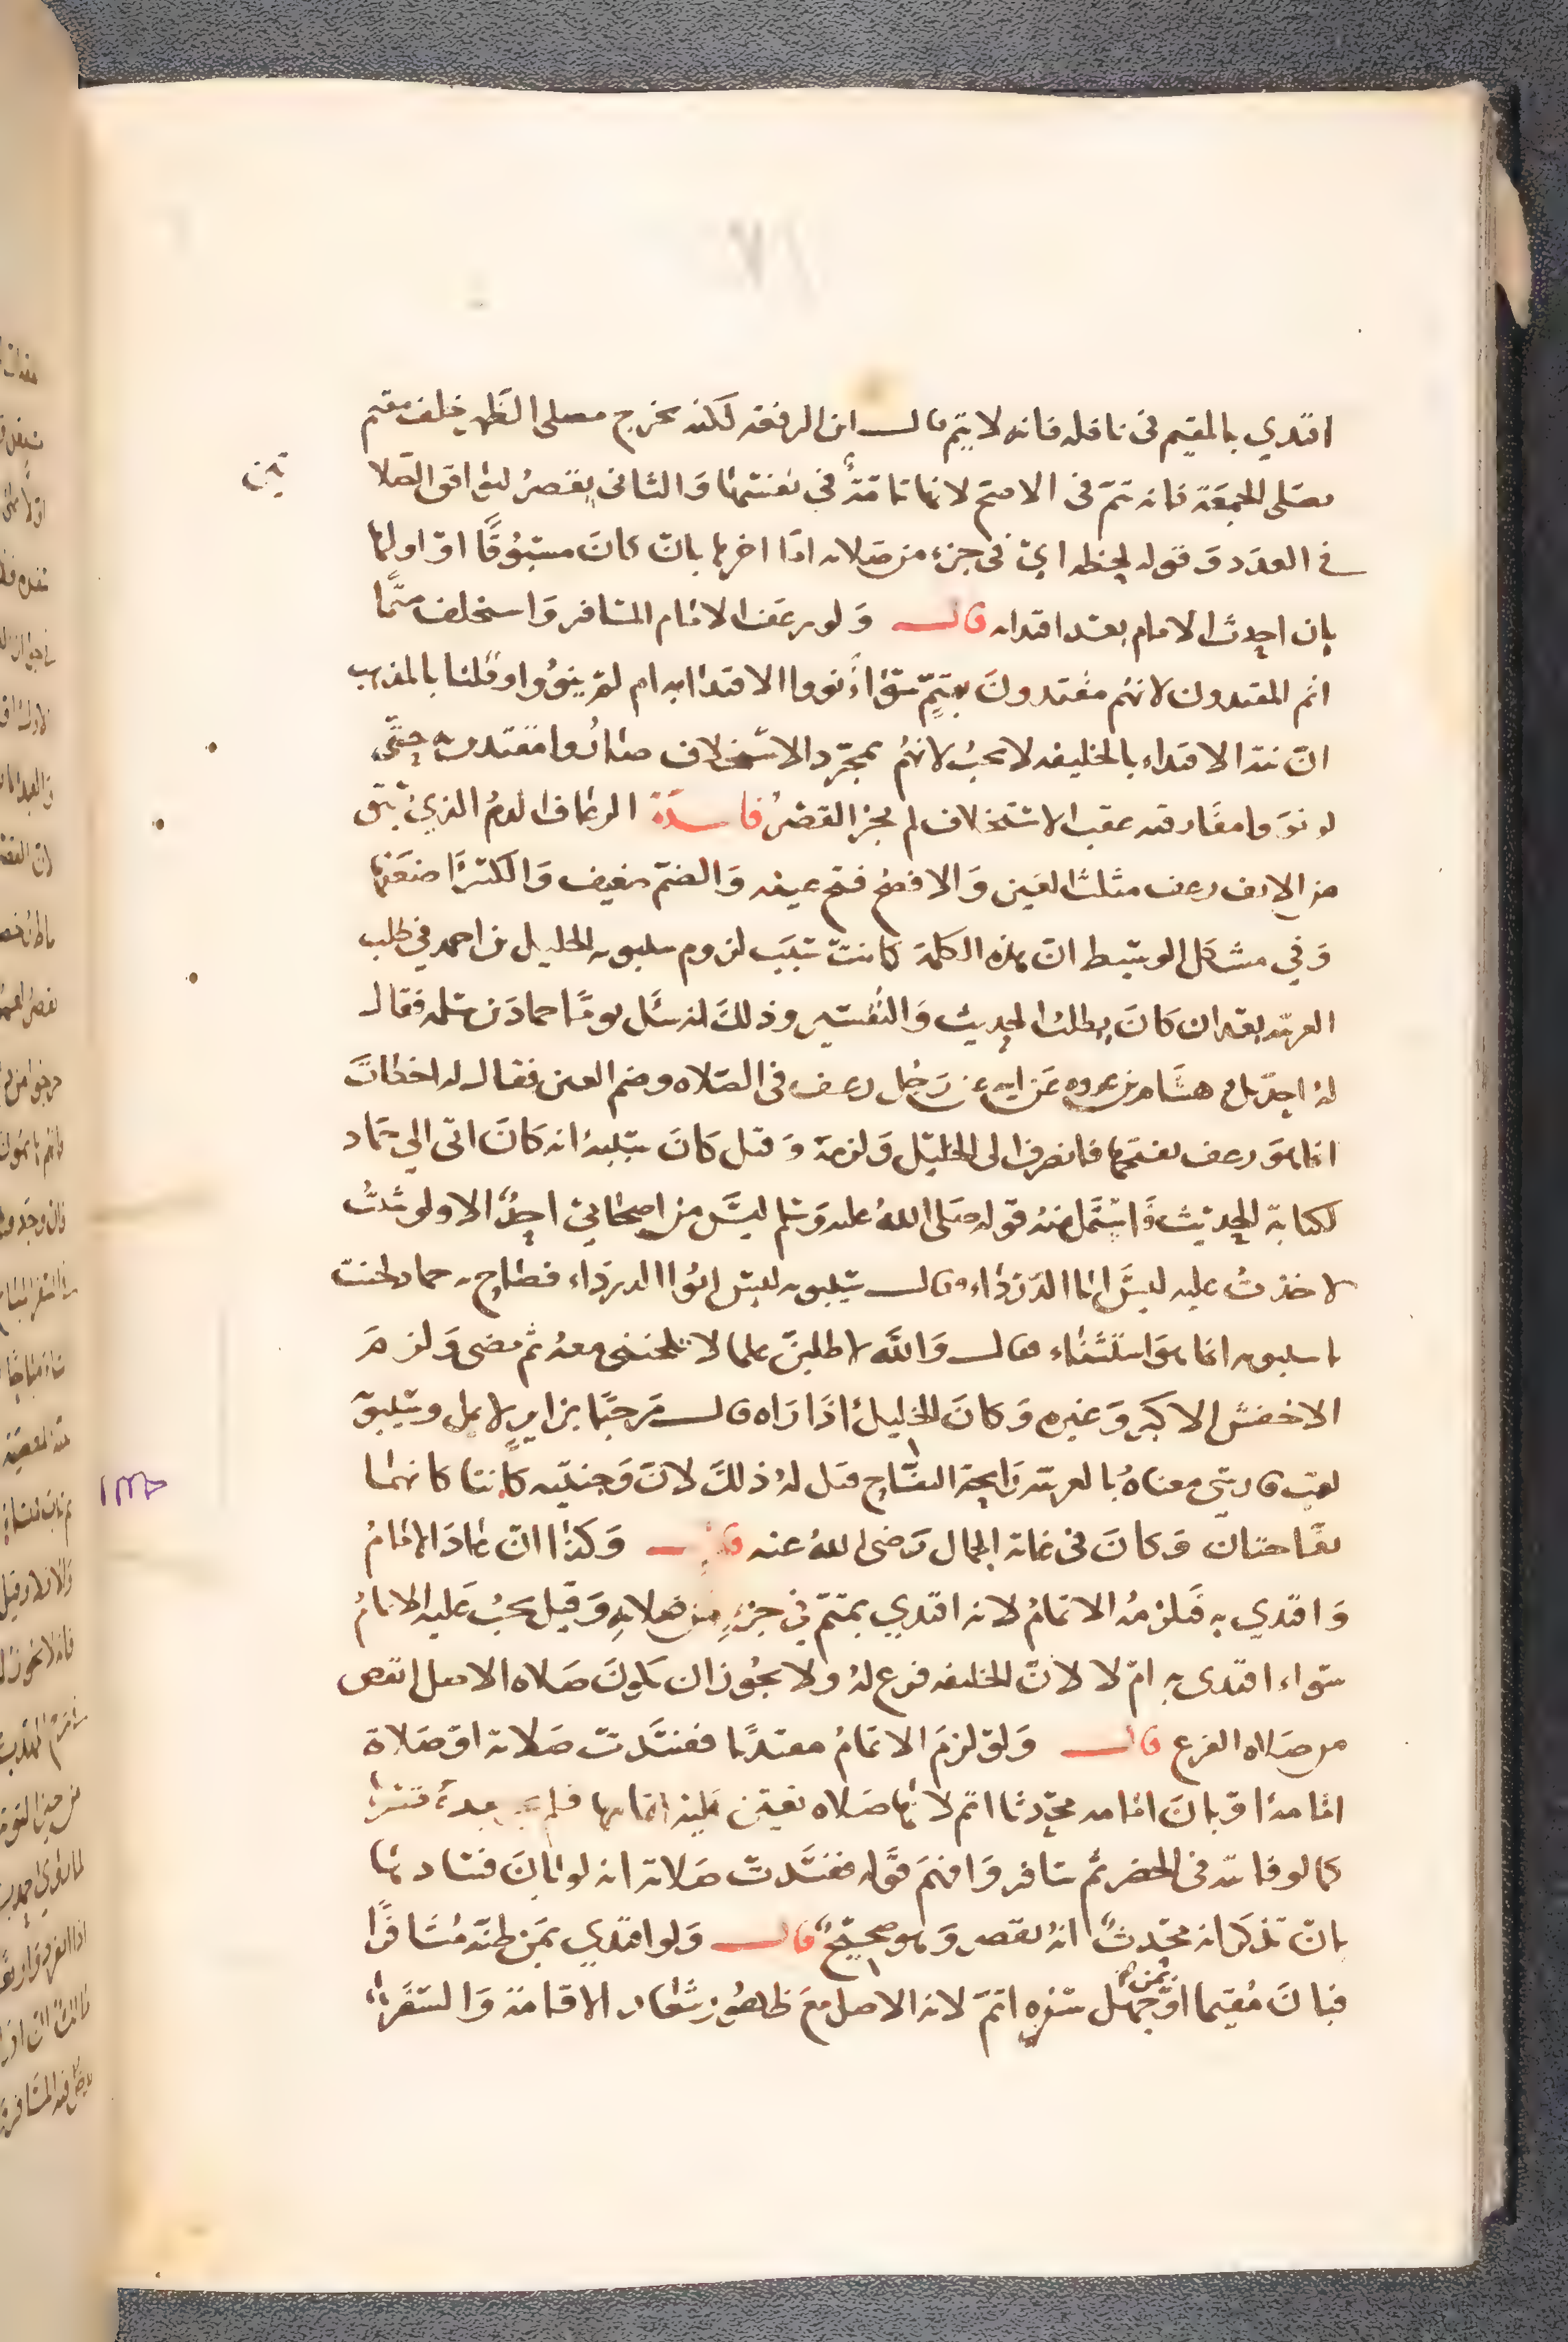 اقتدي بالمقيم في نافله فانه لا يتم قال ابن الرفعه لكنه يخرج مصلي الظهر خلف مقيم
يصلى الجمعة فانه يتم في الاصح لانها تامة في نفسها والثاني يقصر ليوافق الصلا تين
في العدد وقوله لحظه اي في جزء من صلاته اما اخرها بان كان مسبوقا او اولها
بان احدث الامام بعد اقتدائه قال ولو رعف الامام المسافر واستخلف متما
اتم المقتدون لانهم مقتدون بمتم سواء نووا الاقتدا به ام لم ينووا وقلنا بالمذهب
ان نية الاقتداء بالخليفه لا تجب لانهم بمجرد الاستخلاف صاروا مقتدين حتى
لو نووا مفارقته عقب الاستخلاف لم يجز القصر فايدة الرعاف الدم الذي يسبق
من الانف رعف مثلث العين والافصح فتح عينه والضم ضعيف والكسر اضعفها
وفي مشكل الوسيط ان هذه الكلمة كانت سبب لزوم سيبويه الخليل بن احمد في طلب
العربيه بعد ان كان يطلب الحديث والتفسير وذلك انه سئل يوما حماد بن سلمه فقال
له احدثك هشام بن عروه عن ابيه عن رجل رعف في الصلاه وضم العين فقال له اخطات
انما هو رعف بفتحها فانصرف الى الخليل ولزمه وقيل كان سببه انه كان اتى الي حماد
لكتابة الحديث فاستملى منه قوله صلى الله عليه وسلم ليس من اصحابي احد الا ولو شئت
لاخذت عليه ليس ابا الدرداء وقال سيبويه ليس ابوا الدرداء فصاح به حماد لحنت
يا سيبويه انما هو استثناء فقال والله لاطلبن علما لا تلحنني معه ثم مضى ولزم
الاخفش الاكبر وغيره وكان الخليل اذا راه قال مرحبا بزاير لا يمل وسيبويه
لقب فارسي معناه بالعربيه رايحة التفاح قيل له ذلك لان وجنتيه كانتا كانهما
تفاحتان وكان في غاية الجمال رضي الله عنه قال وكذا ان عاد الامام
واقتدي به فلزمه الاتمام لانه اقتدي بمتم في جزء من صلاته وقيل يجب عليه الاتمام
سواء اقتدى به ام لا لان الخليفه فرع له ولا يجوز ان يكون صلاه الاصل انقص
من صلاه الفرع قال ولو لزم الاتمام مقتديا ففسدت صلاته او صلاة
امامه او بان امامه محدثا اتم لانها صلاه تعين عليه اتمامها فلم
كما لو فاتته في الحضر ثم سافر وافهم قوله ففسدت صلاته انه لو بان فسادها
بان تذكر انه محدث انه يقصر وهو صحيح قال ولو اقتدي بمن ظنه مسافرا
فبان مقيما او بمن جهل سفره اتم لانه الاصل مع ظهور شعار الاقامة والسفر